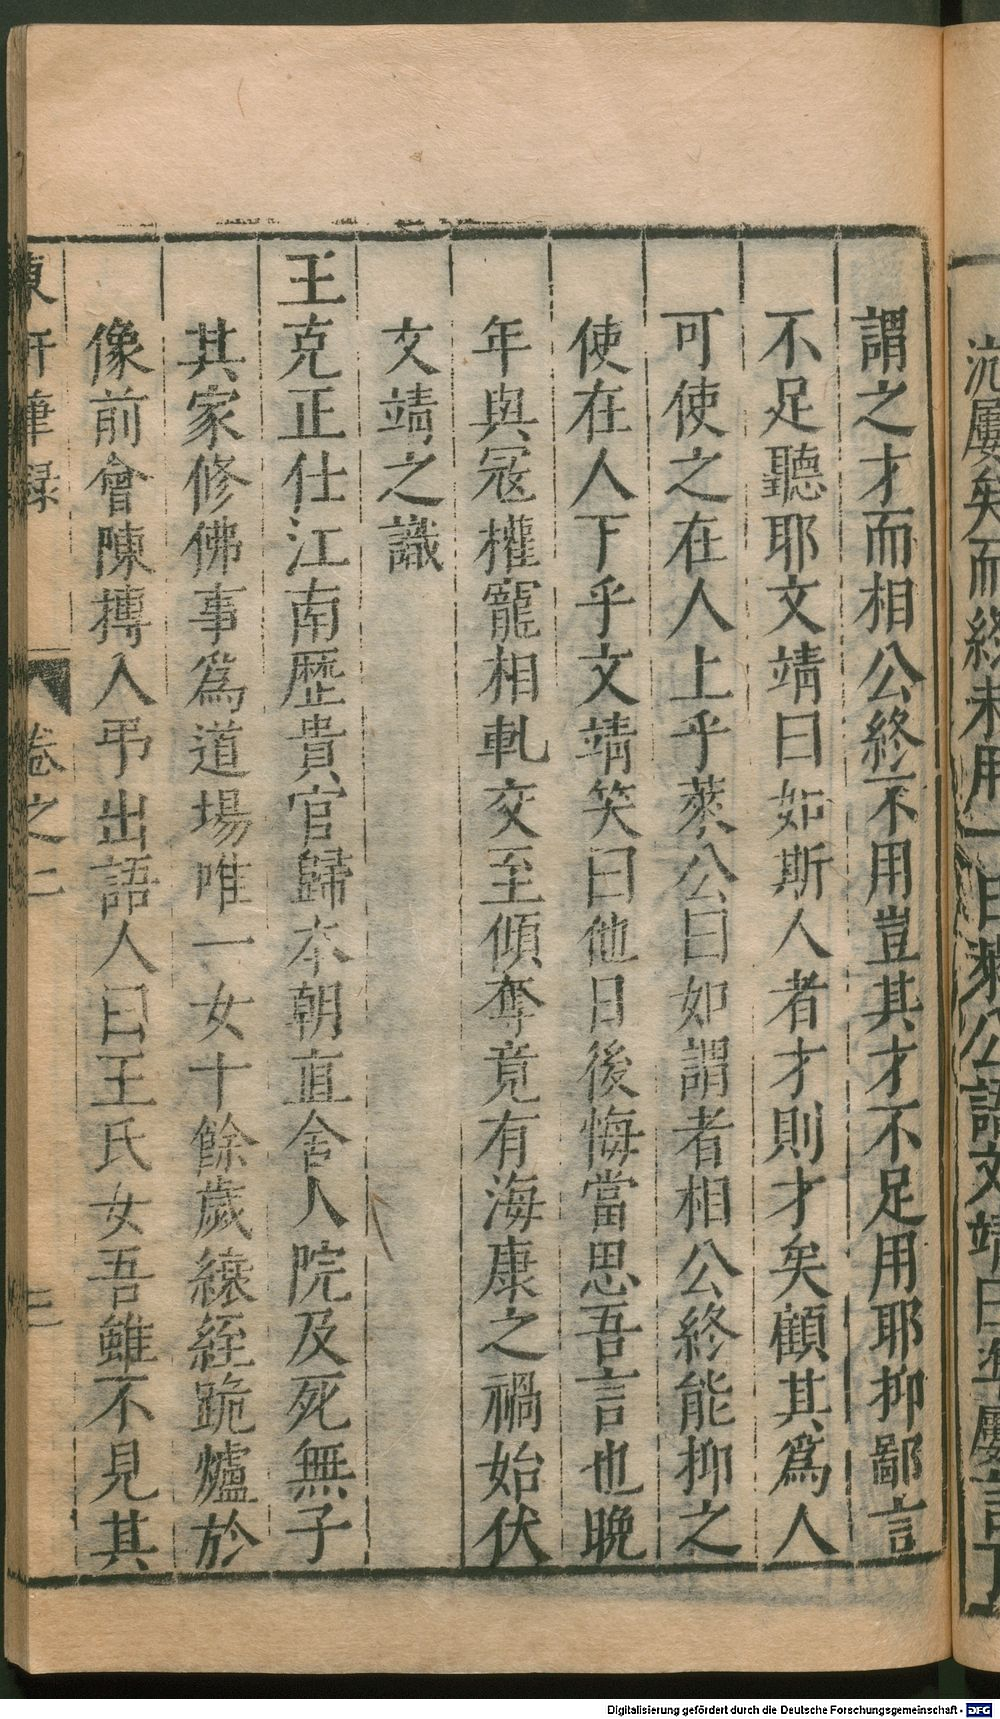 沆屢矣而終未用一日萊公語文靖曰準屢言丁
謂之才而相公終不用豈其才不足用耶抑鄙言
不足聽耶文靖曰如斯人者才則才矣顧其為人
可使之在人上乎萊公曰如謂者相公終能抑之
使在人下乎文靖笑曰他日後悔當思吾言也晚
年與冦權寵相軋交至傾奪竟有海康之禍始伏
文靖之識
王克正仕江南歴貴官歸本朝直舍人院及死無子
其家修佛事為道場唯一女十餘歲縗絰跪爐於
像前會陳摶入弔出語人曰王氏女吾雖不見其
東軒筆録 卷之二 二
Digitalisierung gefördert durch die Deutsche Forschungsgemeinschaft - DFG